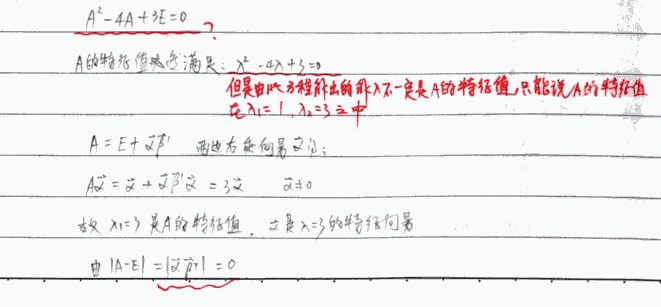 A²-4A+3E=0 ?
A的特征值必定满足: λ²-4λ+3=0
但是由此方程解出的λ不一定是A的特征值,只能说A的特征值
在λ₁=1,λ₂=3之中
A=E+αβᵀ 两边右乘向量α得:
Aα=α+αβᵀα=3α α≠0
故λ₁=3是A的特征值,α是λ=3的特征向量
由|A-E|=|αβᵀ|=0